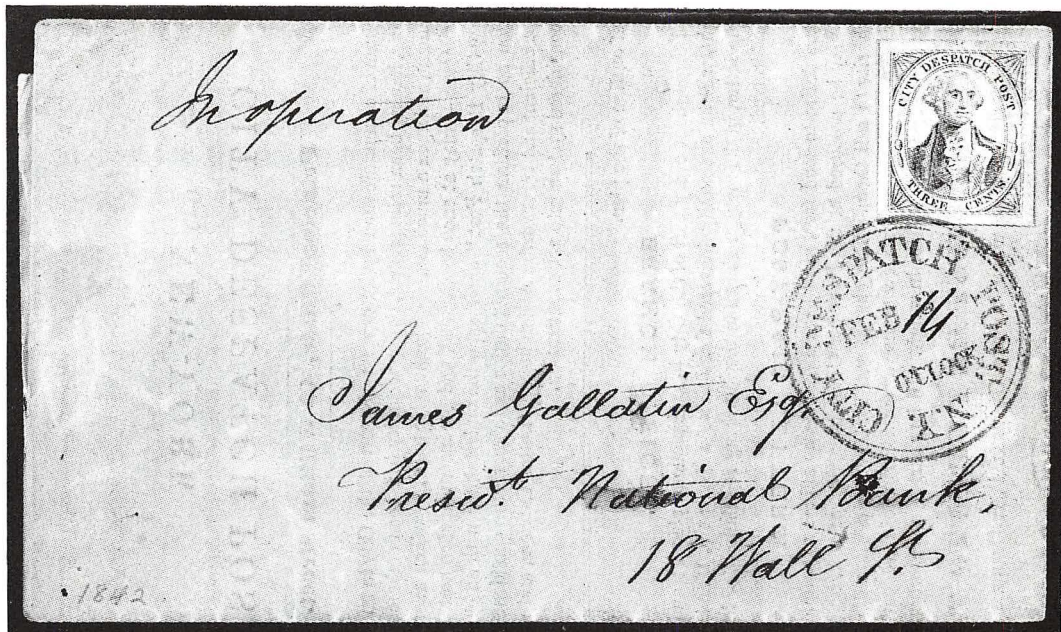 In operation
CITY DESPATCH POST
THREE CENTS
CITY DESPATCH POST, N.Y.
FEB 14
O'CLOCK
James Gallatin Esq.
Presidt. National Bank,
18 Wall St.
1842